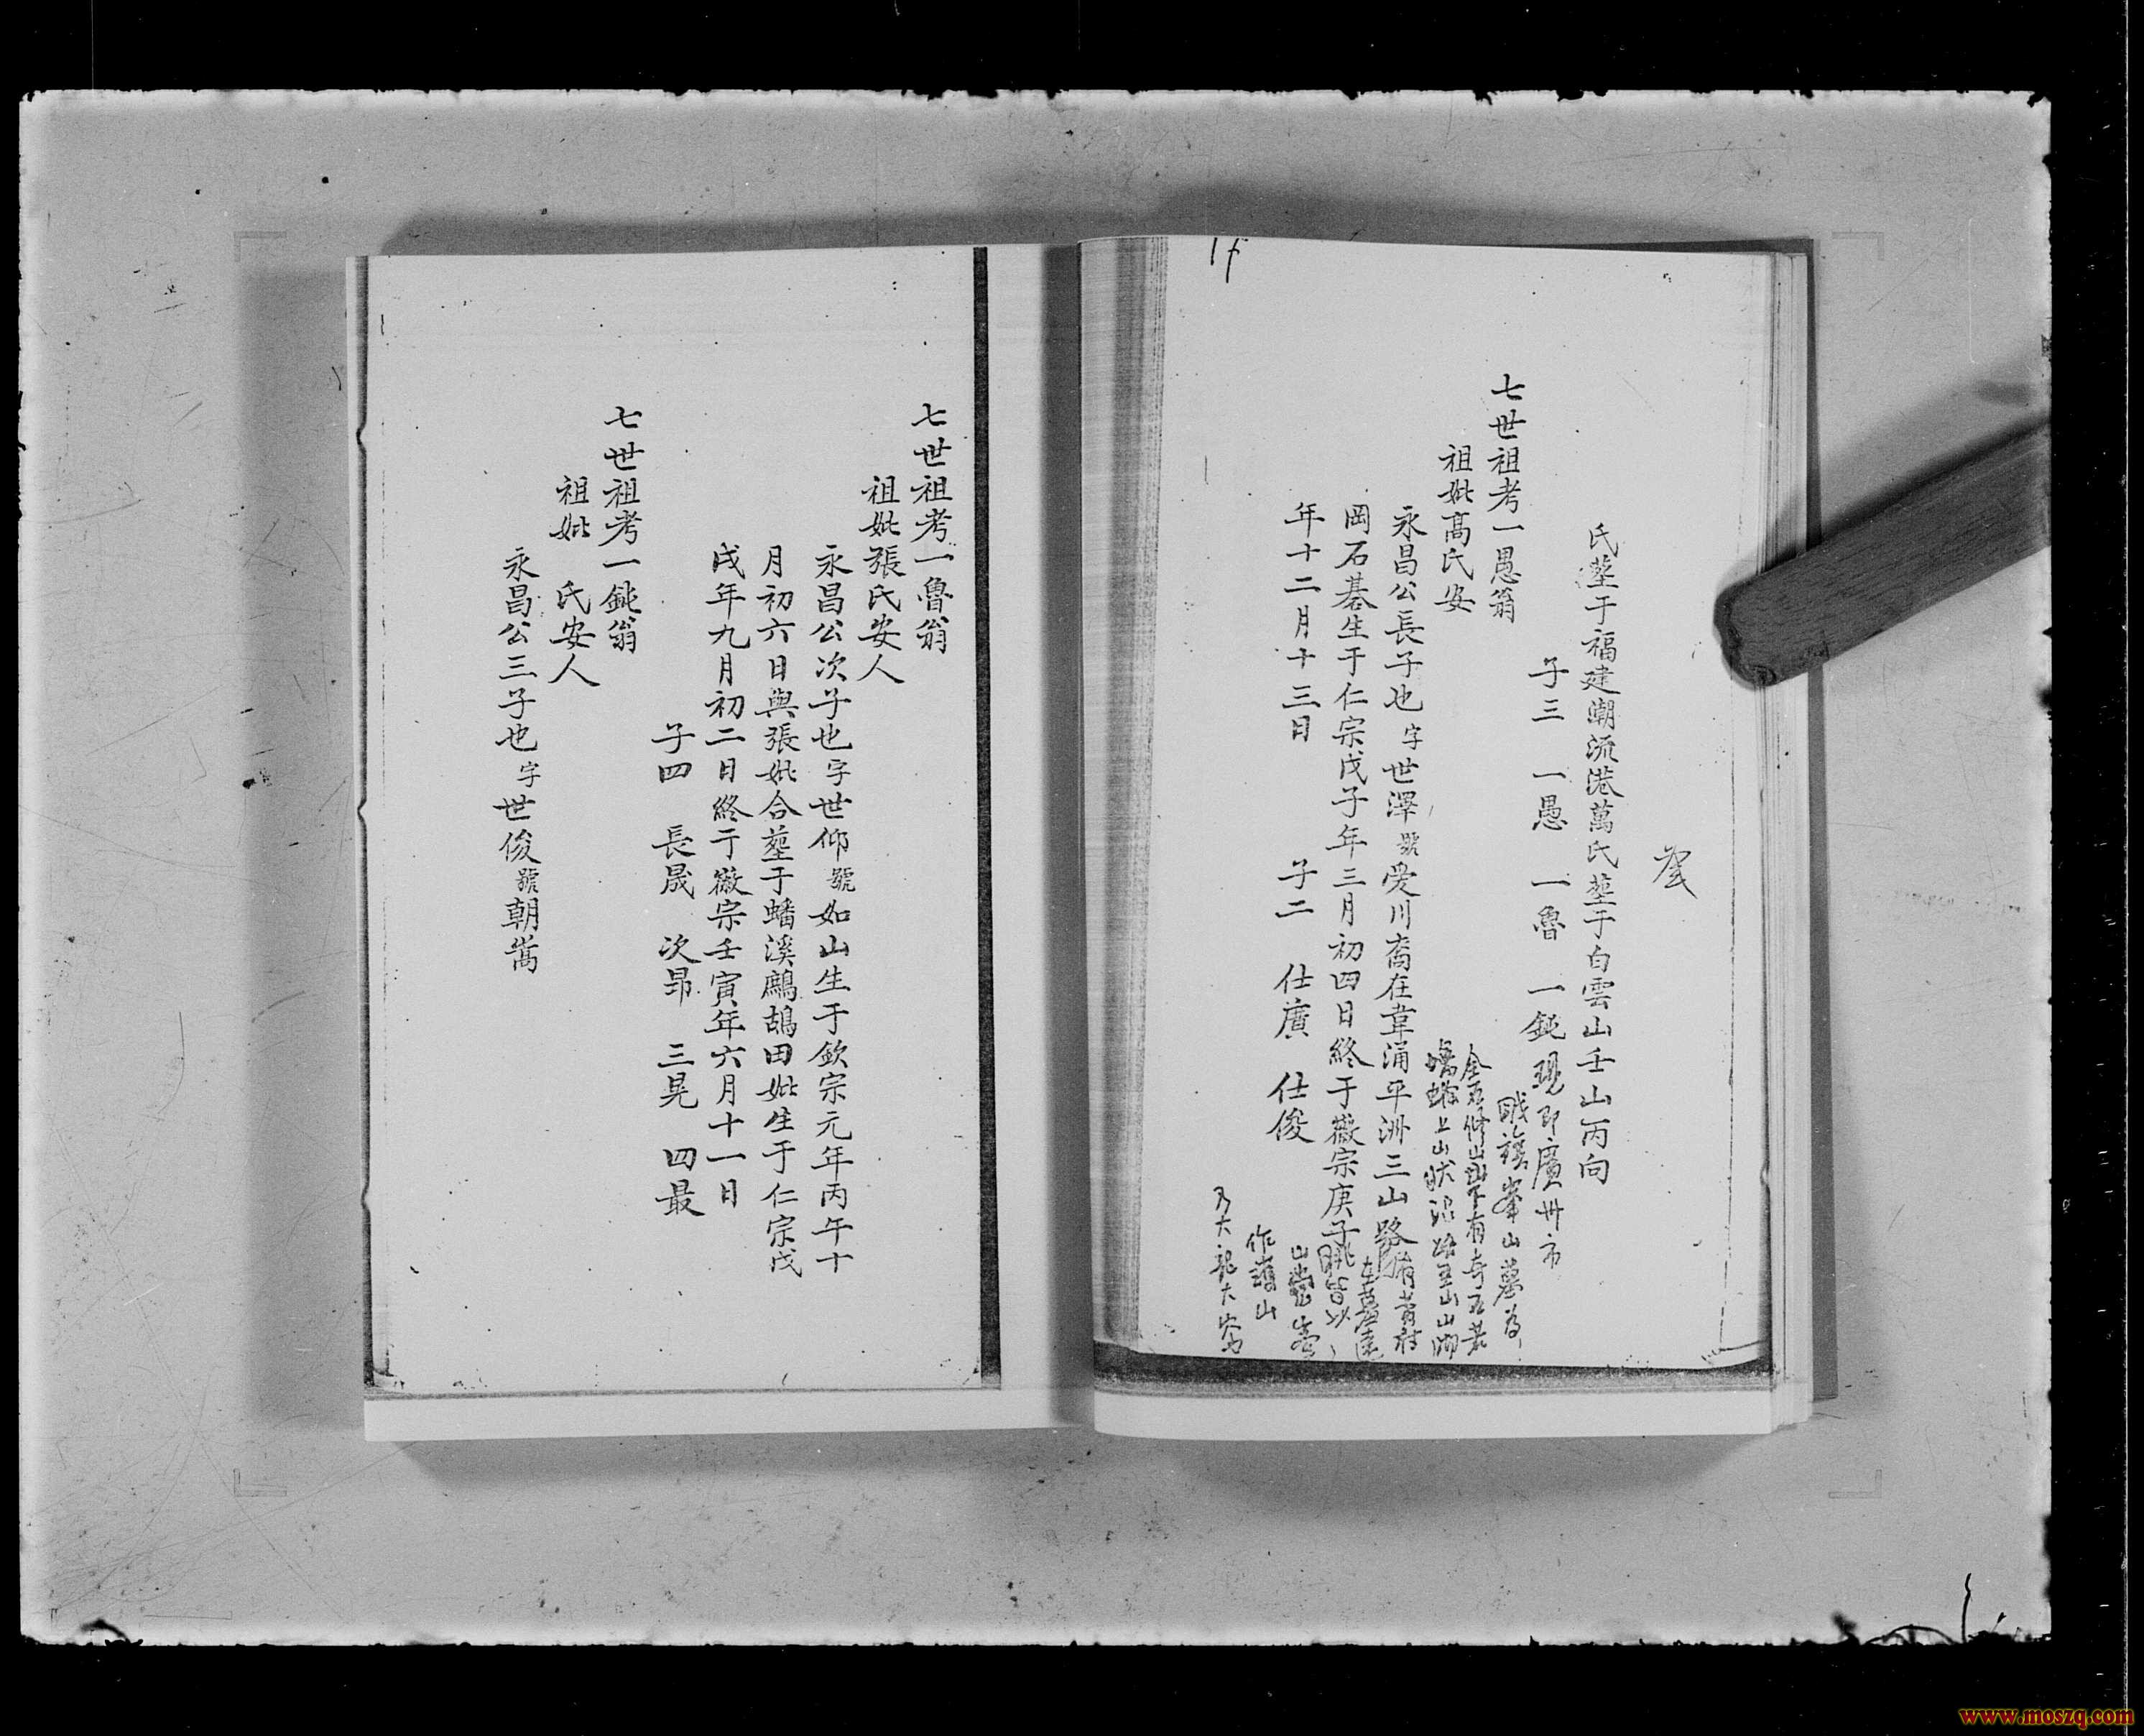 氏塟于福建潮流港萬氏塟于白雲山壬山丙向
子三 一愚 一魯 一鈍 現即廣州市
七世祖考一愚翁
祖妣高氏安
永昌公長子也字世澤號愛川裔在韋涌平洲三山路
岡石碁生于仁宗戊子年三月初四日終于徽宗庚子
年十二月十三日 子二 仕廣 仕俊
作護山
七世祖考一魯翁
祖妣張氏安人
永昌公次子也字世仰號如山生于欽宗元年丙午十
月初六日與張妣合塟于蟠溪鷓鴣田妣生于仁宗戊
戌年九月初二日終于徽宗壬寅年六月十一日
子四 長晟 次昂 三晃 四最
七世祖考一鈍翁
祖妣 氏安人
永昌公三子也字世俊號朝嵩
www.moszq.com